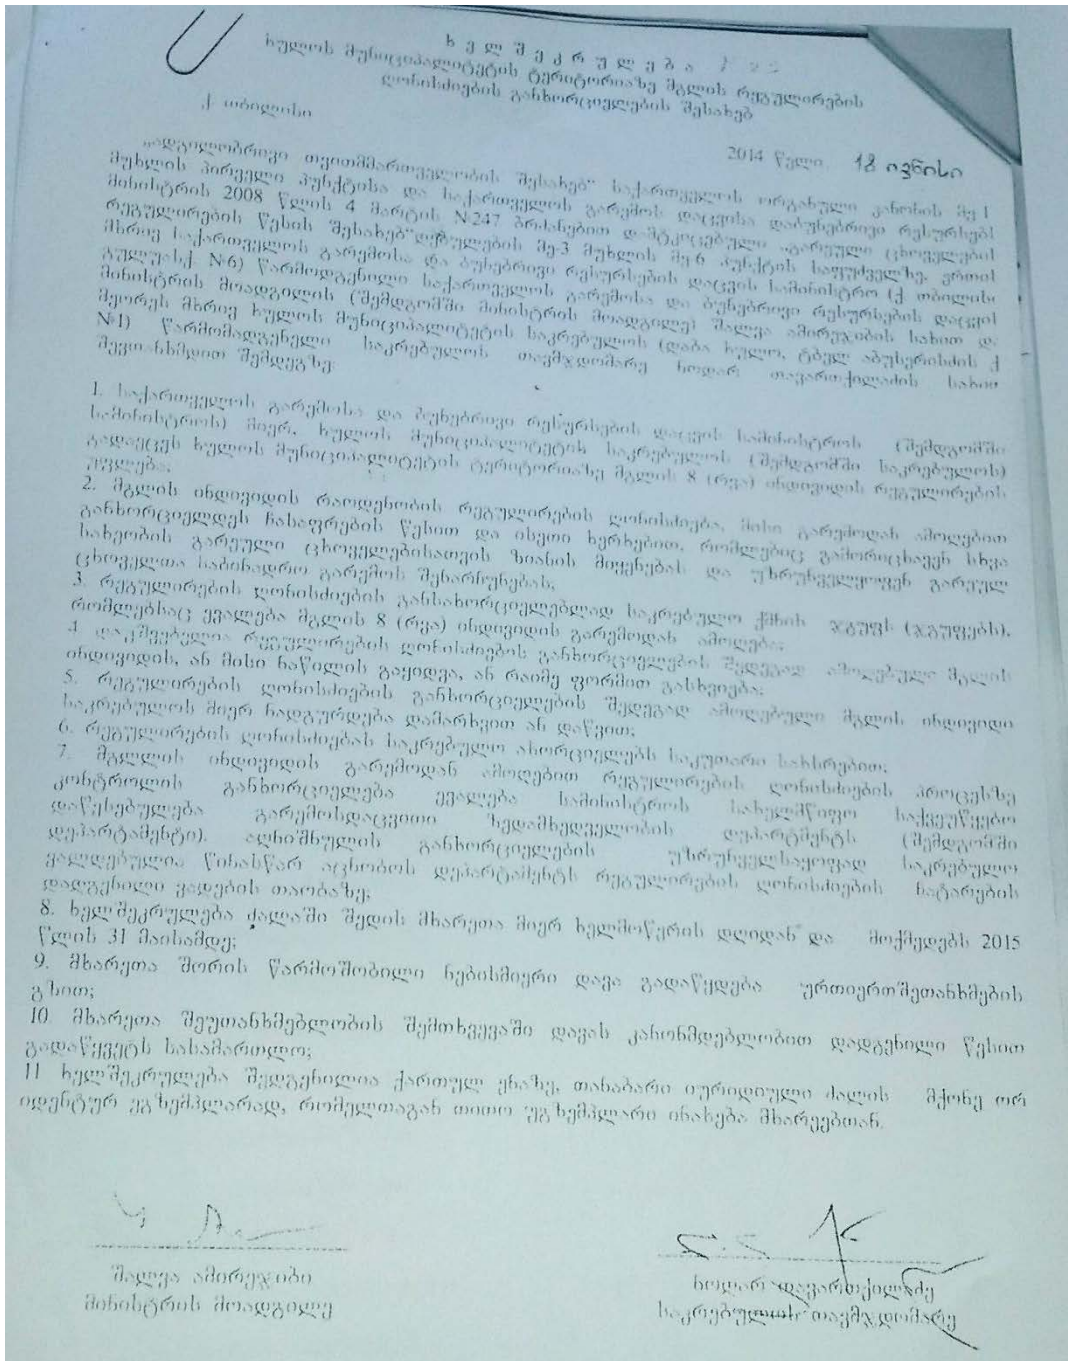 ხ ე ლ შ ე კ რ უ ლ ე ბ ა
ხულოს მუნიციპალიტეტის ტერიტორიაზე მგლის რეგულირების
ღონისძიების განხორციელების შესახებ
ქ თბილისი
2014 წელი 18 ივნისი
„ადგილობრივი თვითმმართველობის შესახებ“ საქართველოს ორგანული კანონის მე-1
მუხლის პირველი პუნქტისა და საქართველოს გარემოს დაცვისა და ბუნებრივი რესურსებ
მინისტრის 2008 წლის 4 მარტის N247 ბრძანებით დამტკიცებული „გარეული ცხოველების
რეგულირების წესის შესახებ“ დებულების მე-3 მუხლის მე-6 პუნქტის საფუძველზე, ერთის
მხრივ საქართველოს გარემოსა და ბუნებრივი რესურსების დაცვის სამინისტრო (ქ თბილისი
გულუას ქ N6) წარმოდგენილი საქართველოს გარემოსა და ბუნებრივი რესურსების დაცვის
მინისტრის მოადგილის (შემდგომში მინისტრის მოადგილე) შალვა ამირეჯიბის სახით და
მეორეს მხრივ ხულოს მუნიციპალიტეტის საკრებულოს (დაბა ხულო, ტბელ აბუსერისძის ქ
N1) წარმომადგენელი საკრებულოს თავმჯდომარე ნოდარ თავართქილაძის სახით
შევთანხმდით შემდეგზე:
1. საქართველოს გარემოსა და ბუნებრივი რესურსების დაცვის სამინისტროს (შემდგომში
სამინისტროს) მიერ, ხულოს მუნიციპალიტეტის საკრებულოს (შემდგომში საკრებულოს)
გადაეცეს ხულოს მუნიციპალიტეტის ტერიტორიაზე მგლის 8 (რვა) ინდივიდის რეგულირების
უფლება;
2. მგლის ინდივიდის რაოდენობის რეგულირების ღონისძიება, მისი გარემოდან ამოღებით
განხორციელდეს ჩასაფრების წესით და ისეთი ხერხებით, რომლებიც გამორიცხავენ სხვა
სახეობის გარეული ცხოველებისათვის ზიანის მიყენებას და უზრუნველყოფენ გარეულ
ცხოველთა საბინადრო გარემოს შენარჩუნებას;
3. რეგულირების ღონისძიების განსახორციელებლად საკრებულო ქმნის ჯგუფს (ჯგუფებს),
რომლებსაც ევალება მგლის 8 (რვა) ინდივიდის გარემოდან ამოღება;
4 დაკშვებულია რეგულირების ღონისძიების განხორციელების შედეგად ამოღებული მგლის
ინდივიდის, ან მისი ნაწილის გაყიდვა, ან რაიმე ფორმით გასხვიება;
5. რეგულირების ღონისძიების განხორციელების შედეგად ამოღებული მგლის ინდივიდი
საკრებულოს მიერ ნადგურდება დამარხვით ან დაწვით;
6. რეგულირების ღონისძიებას საკრებულო ახორციელებს საკუთარი სახსრებით;
7. მგლის ინდივიდის გარემოდან ამოღებით რეგულირების ღონისძიების პროცესზე
კონტროლის განხორციელება ევალება სამინისტროს სახელმწიფო საქვეუწყებო
დაწესებულება გარემოსდაცვითი ზედამხედველობის დეპარტმენტს (შემდგომში
დეპარტამენტი). აღნიშნულის განხორციელების უზრუნველსაყოფად საკრებულო
ვალდებულია წინასწარ აცნობოს დეპარტამენტს რეგულირების ღონისძიების ჩატარების
დადგენილი ვადების თაობაზე;
8. ხელშეკრულება ძალაში შედის მხარეთა მიერ ხელმოწერის დღიდან და მოქმედებს 2015
წლის 31 მაისამდე;
9. მხარეთა შორის წარმოშობილი ნებისმიერი დავა გადაწყდება ურთიერთშეთანხმების
გზით;
10. მხარეთა შეუთანხმებლობის შემთხვევაში დავას კანონმდებლობით დადგენილი წესით
გადაწყვეტს სასამართლო;
11 ხელშეკრულება შედგენილია ქართულ ენაზე, თანაბარი იურიდიული ძალის მქონე ორ
იდენტურ ეგზემპლარად, რომელთაგან თითო ეგზემპლარი ინახება მხარეებთან.
შალვა ამირეჯიბი
მინისტრის მოადგილე
ნოდარ თავართქილაძე
საკრებულოს თავმჯდომარე